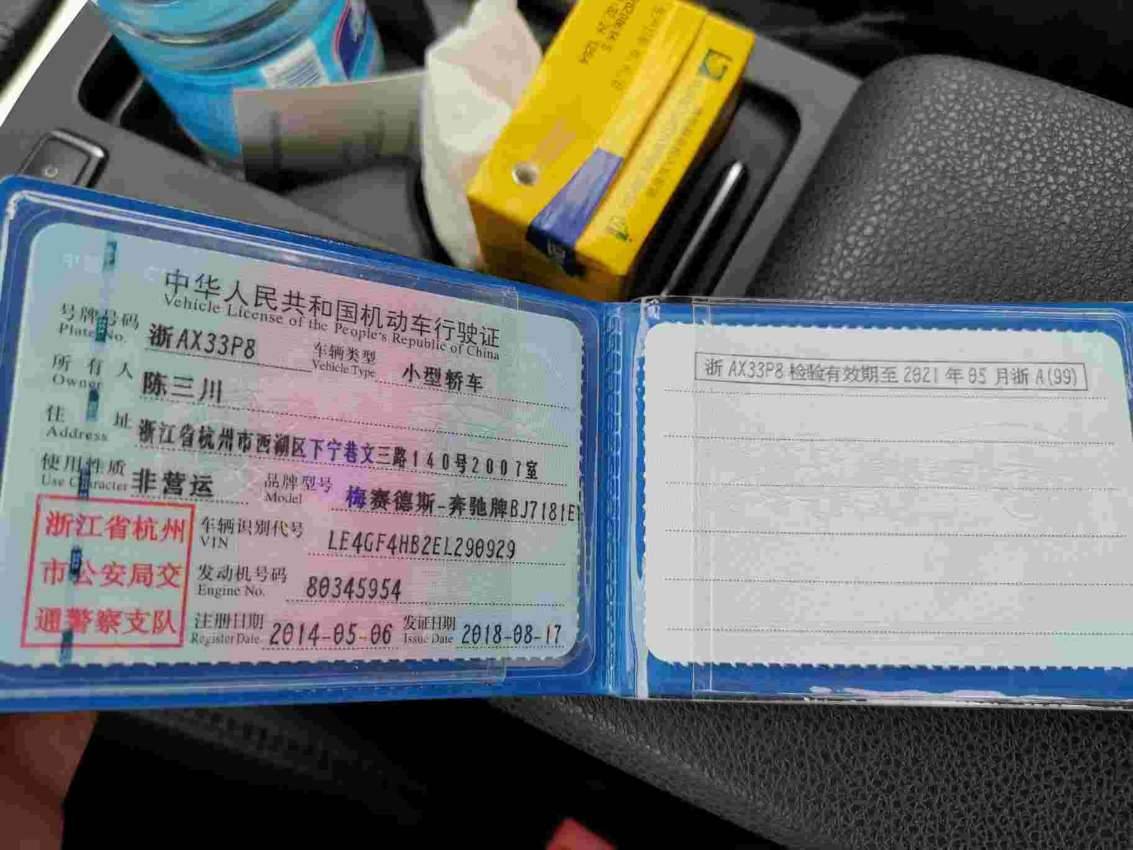 中华人民共和国机动车行驶证
Vehicle License of the People's Republic of China
号牌号码 浙AX33P8 车辆类型 小型轿车
Plate No. Vehicle Type
所有人 陈三川
Owner
住址 浙江省杭州市西湖区下宁巷文三路140号2007室
Address
使用性质 非营运 品牌型号 梅赛德斯-奔驰牌BJ7181E
Use Character Model
浙江省杭州
市公安局交
通警察支队
车辆识别代号 LE4GF4HB2EL290929
VIN
发动机号码 80345954
Engine No.
注册日期 2014-05-06 发证日期 2018-08-17
Register Date Issue Date
浙AX33P8检验有效期至2021年05月浙A(99)